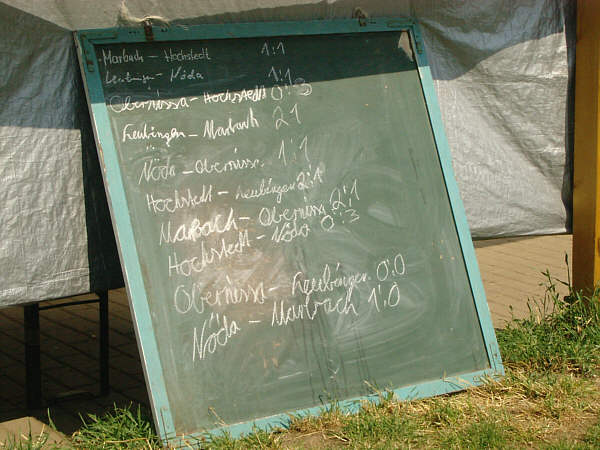 Marbach - Hochstedt 1:1
Leubingen - Nöda 1:1
Obernissa - Hochstedt 0:3
Leubingen - Marbach 2:1
Nöda - Obernissa 1:1
Hochstedt - Leubingen 2:1
Marbach - Obernissa 2:1
Hochstedt - Nöda 0:3
Obernissa - Leubingen 0:0
Nöda - Marbach 1:0